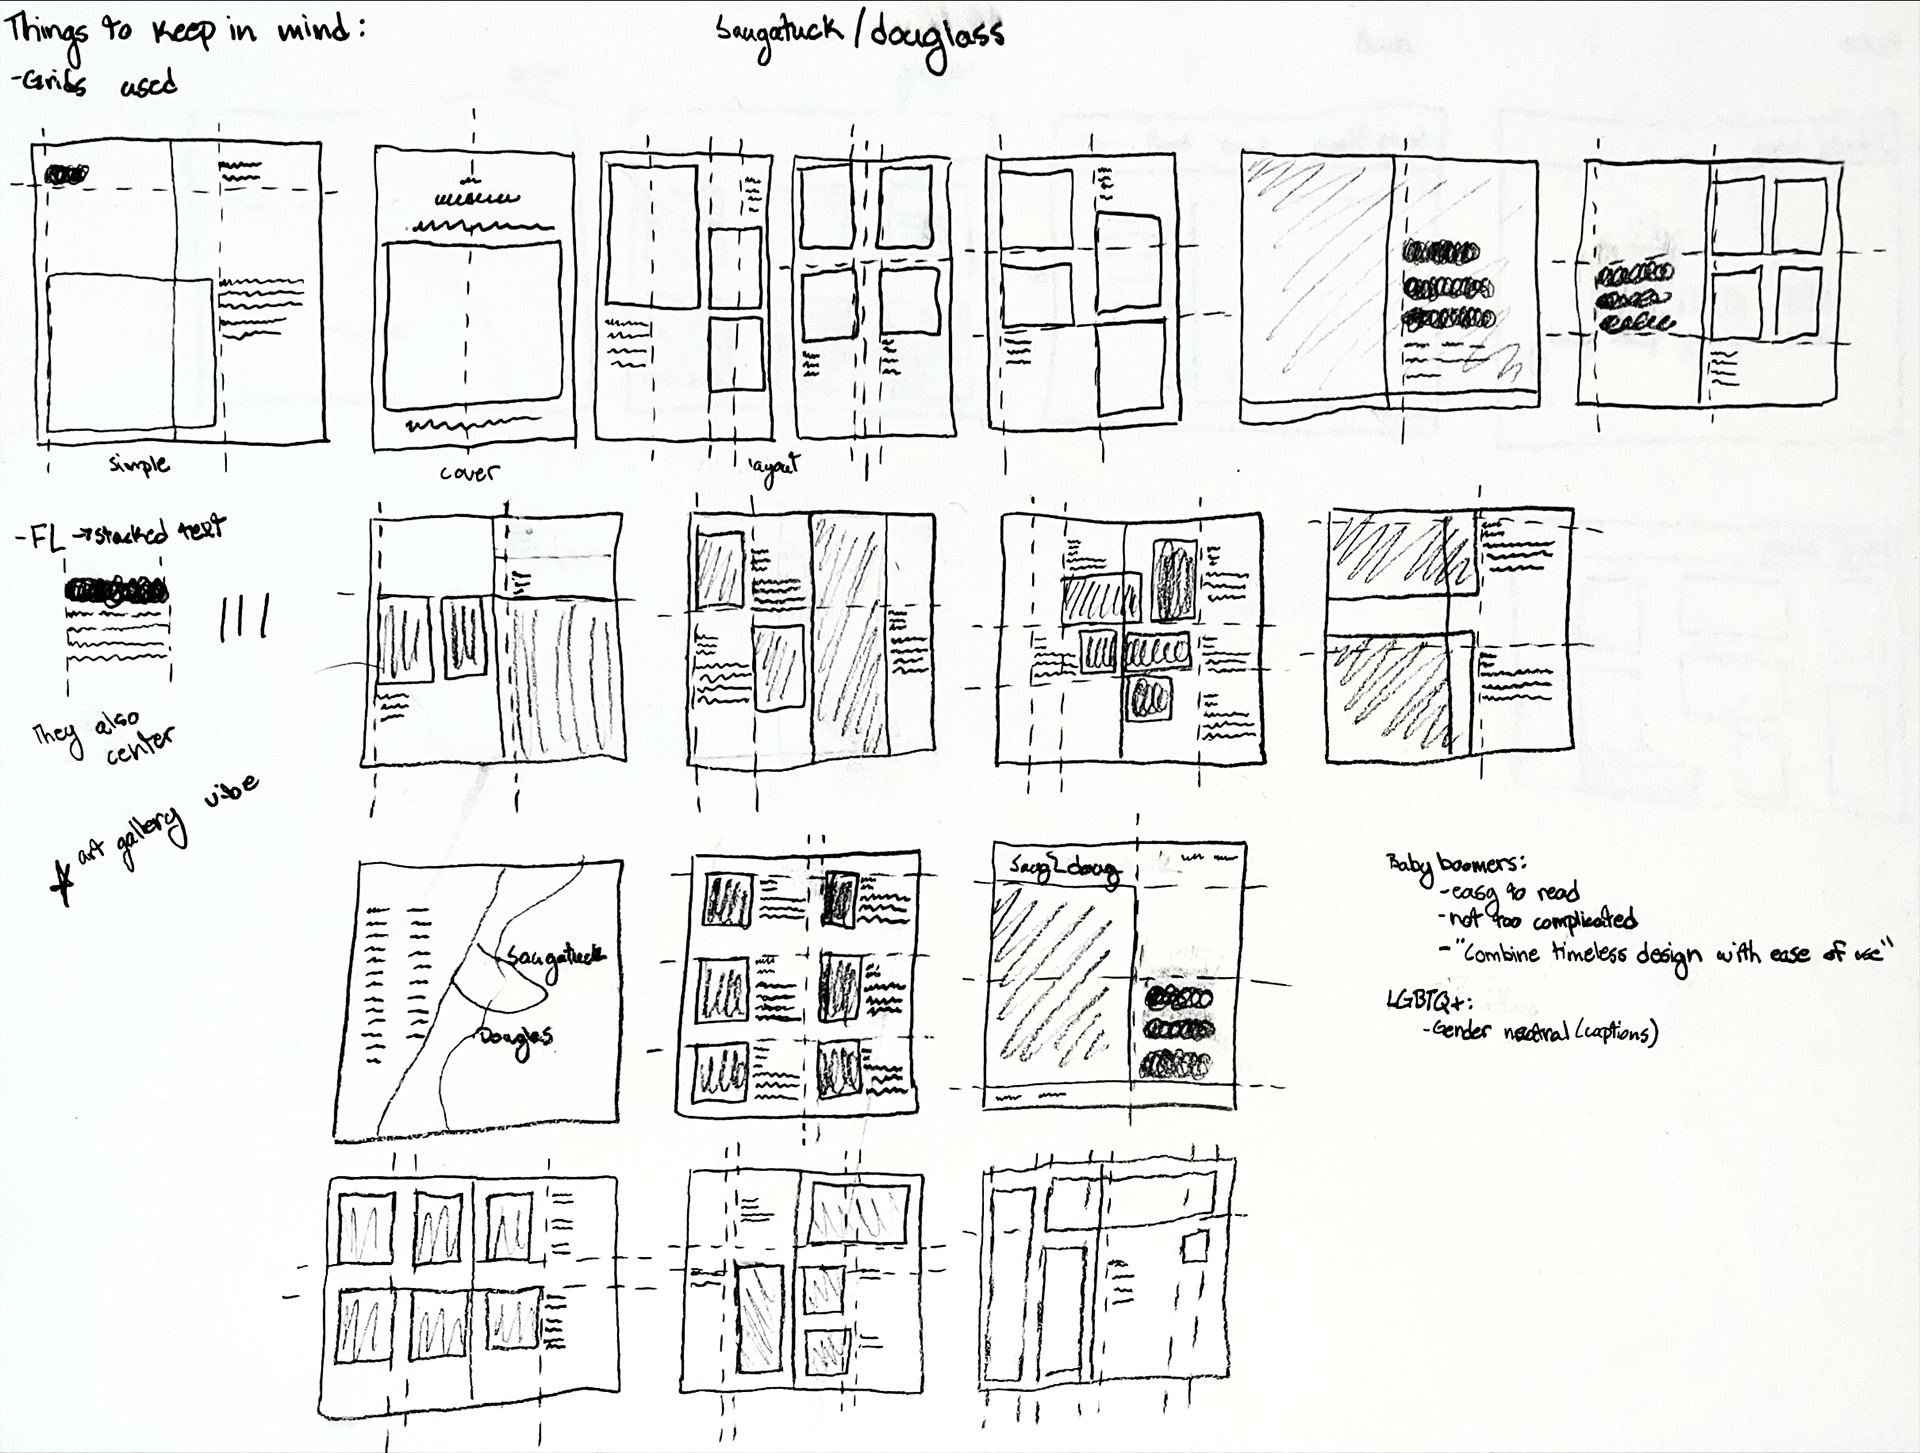 Things to keep in mind:
-Grids used
Saugatuck/douglass
simple
cover
layout
-FL → stacked text
They also
center
art gallery vibe
Saugatuck
Douglas
Saug&doug
Baby boomers:
-easy to read
-not too complicated
-"Combine timeless design with ease of use"
LGBTQ+:
-Gender neutral (captions)